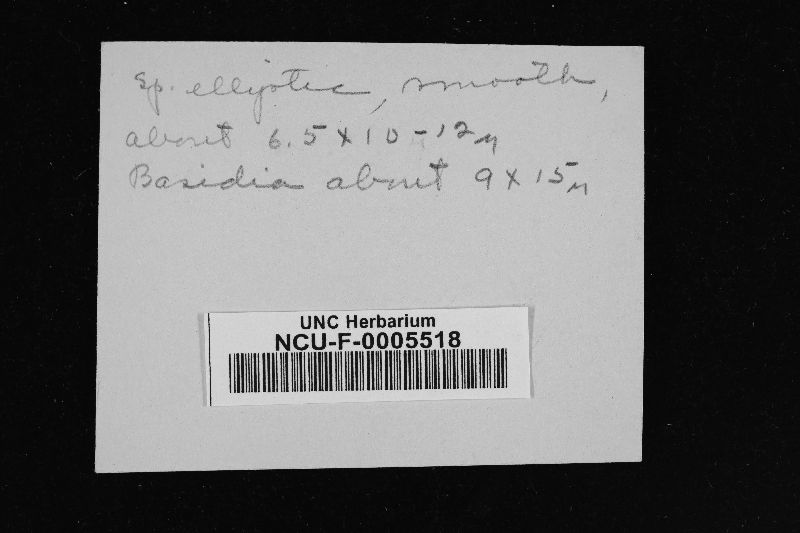 Sp. elliptic, smooth,
about 6.5 x 10-12µ
Basidia about 9 x 15µ
UNC Herbarium
NCU-F-0005518